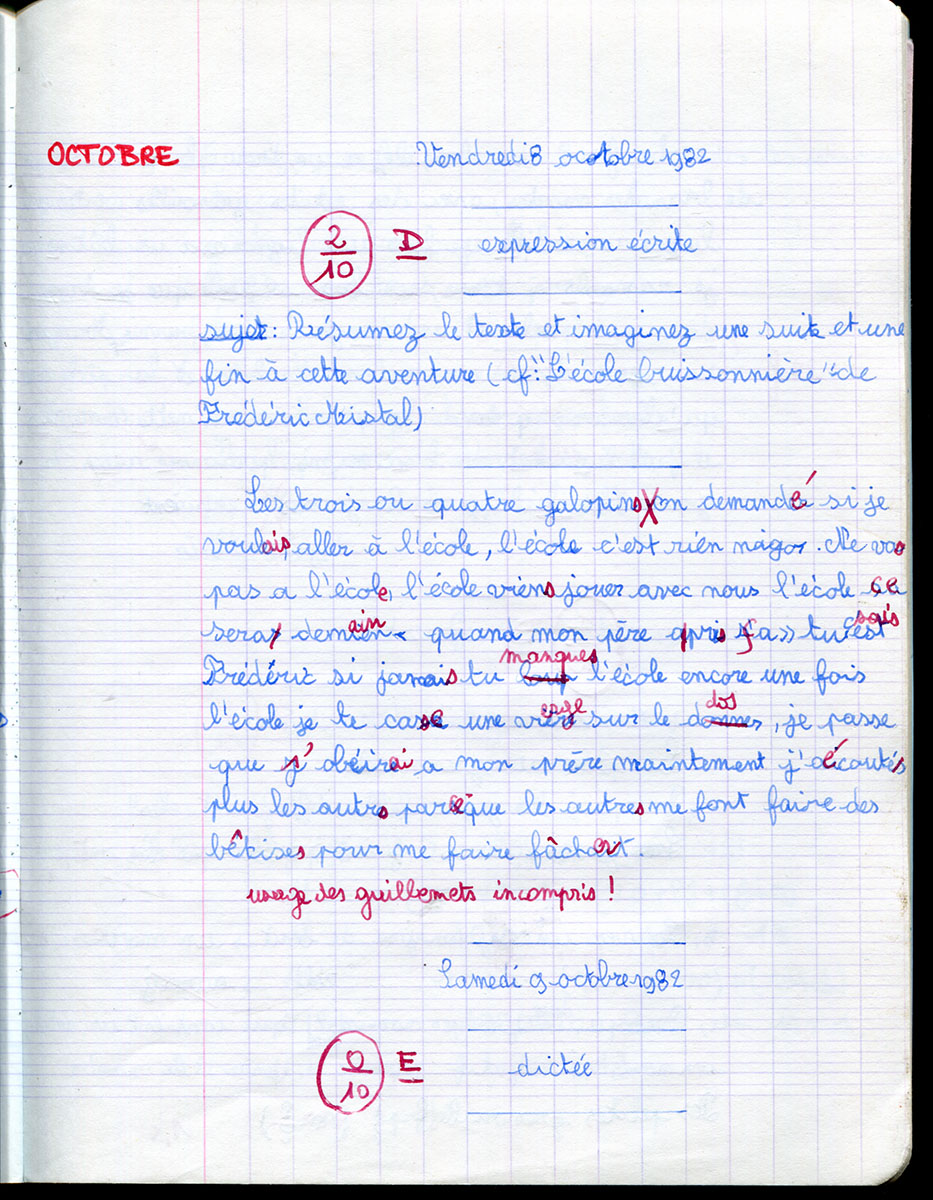 OCTOBRE
Vendredi 8 octobre 1982
2/10 D expression écrite
sujet : Résumez le texte et imaginez une suite et une
fin à cette aventure ( cf : "L'école buissonnière" de
Frédéric Mistal)
Les trois ou quatre galopins on demandé si je
voulais aller à l'école, l'école c'est rien . Ne vas
pas a l'école, l'école viens jouer avec nous l'école ce
sera demain « quand mon père a pris ça » tu sais
Frédéric si jamais tu manques l'école encore une fois
l'école je te casse une verge sur le dos , je passe
que j'obéirai a mon prère maintement j'écouté
plus les autres parceque les autres me font faire des
bêkises pour me faire fâcher.
usage des guillemets incompris !
Samedi 9 octobre 1982
0/10 E dictée